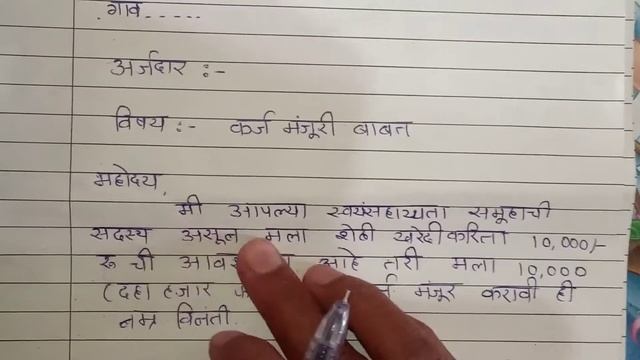 गाव.....
अर्जदार :-
विषय :- कर्ज मंजूरी बाबत
महोदय,
मी आपल्या स्वयंसहाय्यता समूहाची
सदस्य असून मला शेळी खरेदीकरिता 10,000/-
रु ची आहे तरी मला 10,000
(दहा हजार मंजूर करावी ही
नम्र विनंती.